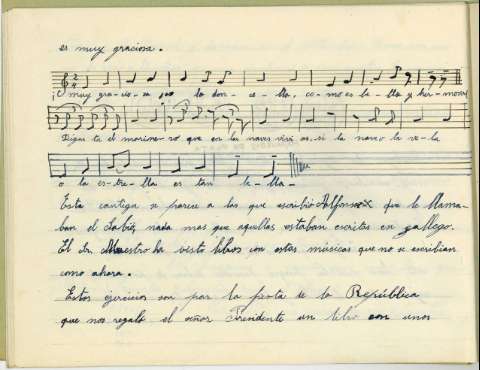 es muy graciosa.
¡Ci muy gra-cio-sa es la don-ce-lla, co-mo es be-lla y her-mosa!
Digas tu el marine-ro que en las naves vivi as, si la nave o la ve-la
o la es-tre-lla es tan be-lla-
Esta cantiga se parece a las que escribió Alfonso X que le llama-
ban el Sabio, nada mas que aquellas estaban escritas en gallego.
El Sr. Maestro ha visto libros con estas músicas que no se escribian
como ahora.
Estos ejercicios son por la fiesta de la República
que nos regaló el señor Presidente un libro con unos